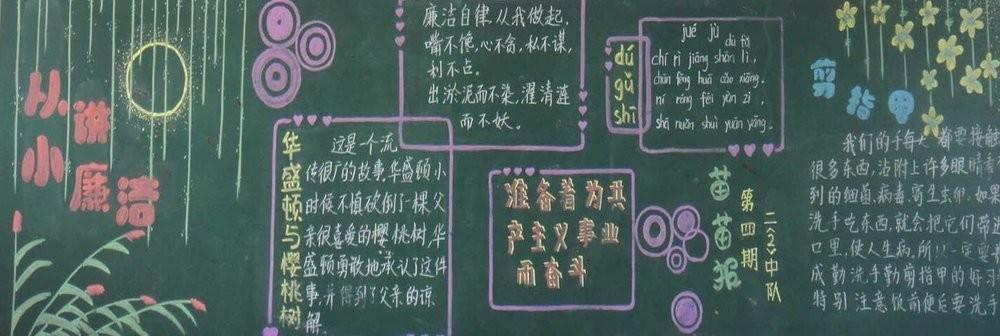 从小讲廉洁
廉洁自律,从我做起.
嘴不馋,心不贪,私不谋,
利不占。
出淤泥而不染,濯清涟
而不妖。
华盛顿与樱桃树
这是一个流
传很广的故事,华盛顿小
时候不慎砍倒了一棵父
亲很喜爱的樱桃树,华
盛顿勇敢地承认了这件
事,并得到了父亲的谅
解
dú
gǔ
shī
jué jù
dù fǔ
chí rì jiāng shān lì,
chūn fēng huā cǎo xiāng.
ní róng fēi yàn zi,
shā nuǎn shuì yuān yāng.
准备着为共
产主义事业
而奋斗
苗苗报
第四期
二(2)中队
剪指甲
我们的手每天都要接触
很多东西,沾附上许多眼睛看
到的细菌,病毒,寄生虫卵.如果
洗手吃东西,就会把它们带
口里,使人生病,所以一定要
成勤洗手勤剪指甲的好习
特别注意饭前便后要洗手